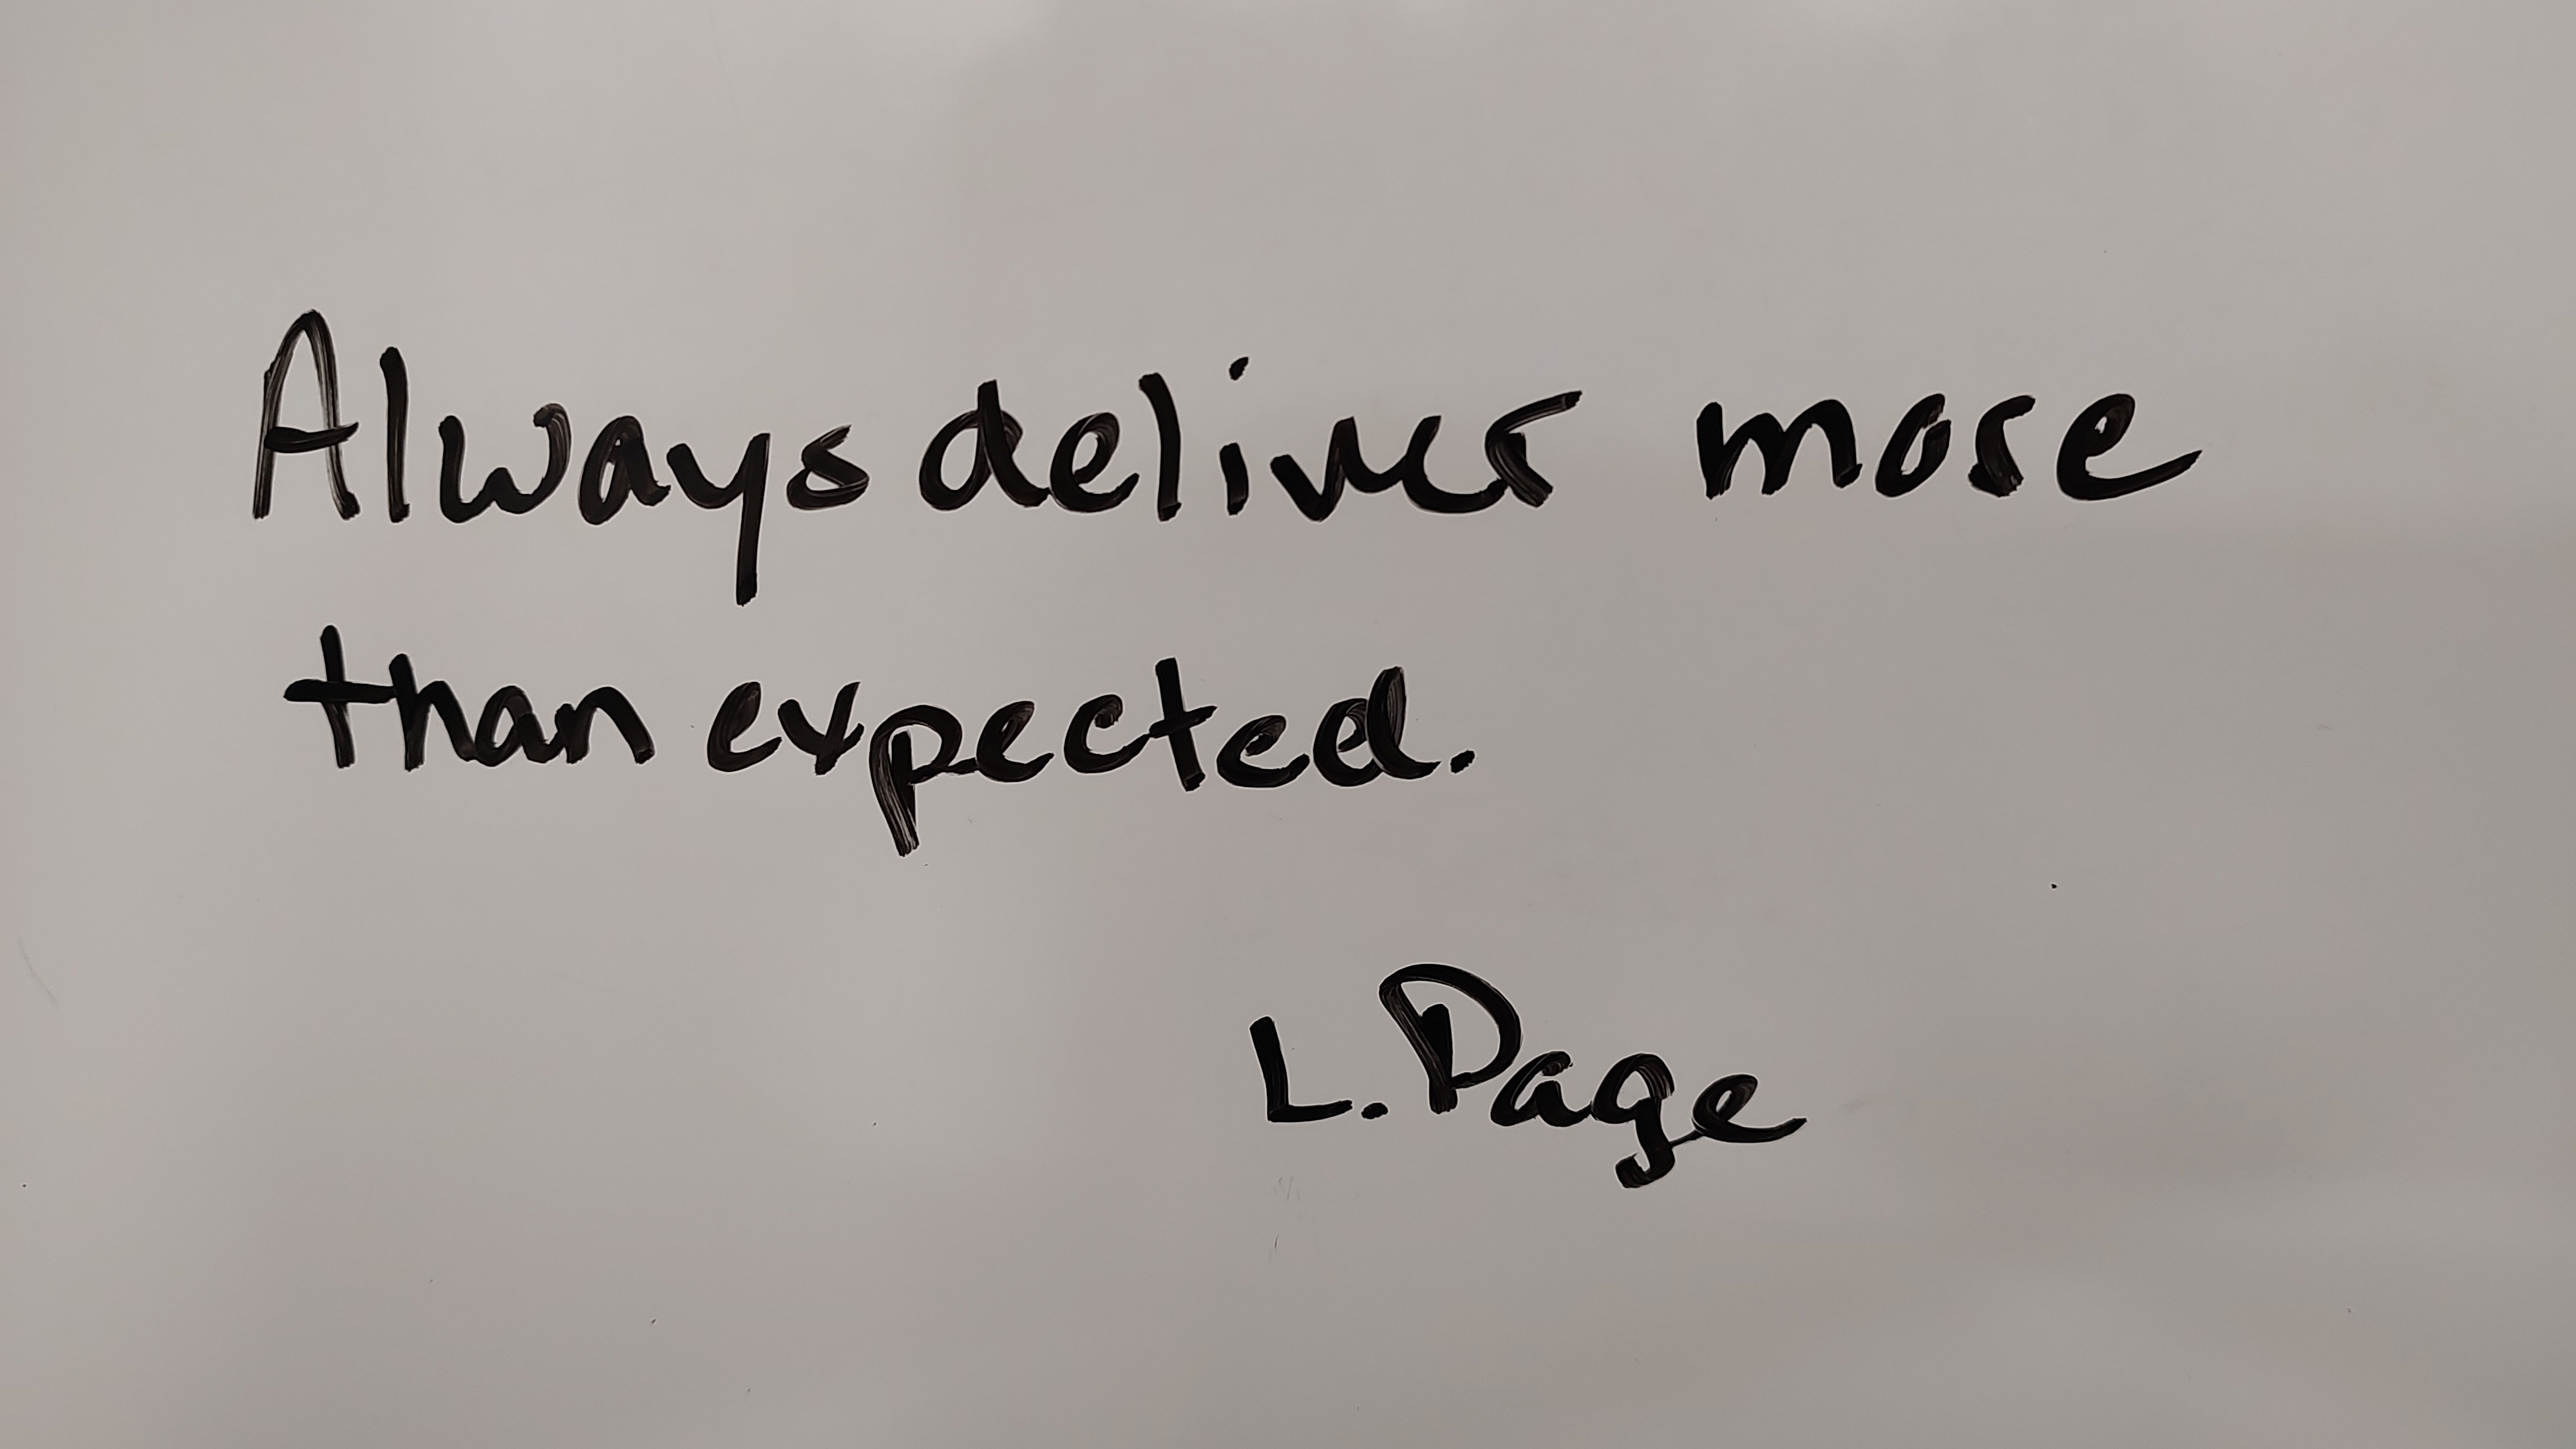 Always deliver more
than expected.
L. Page